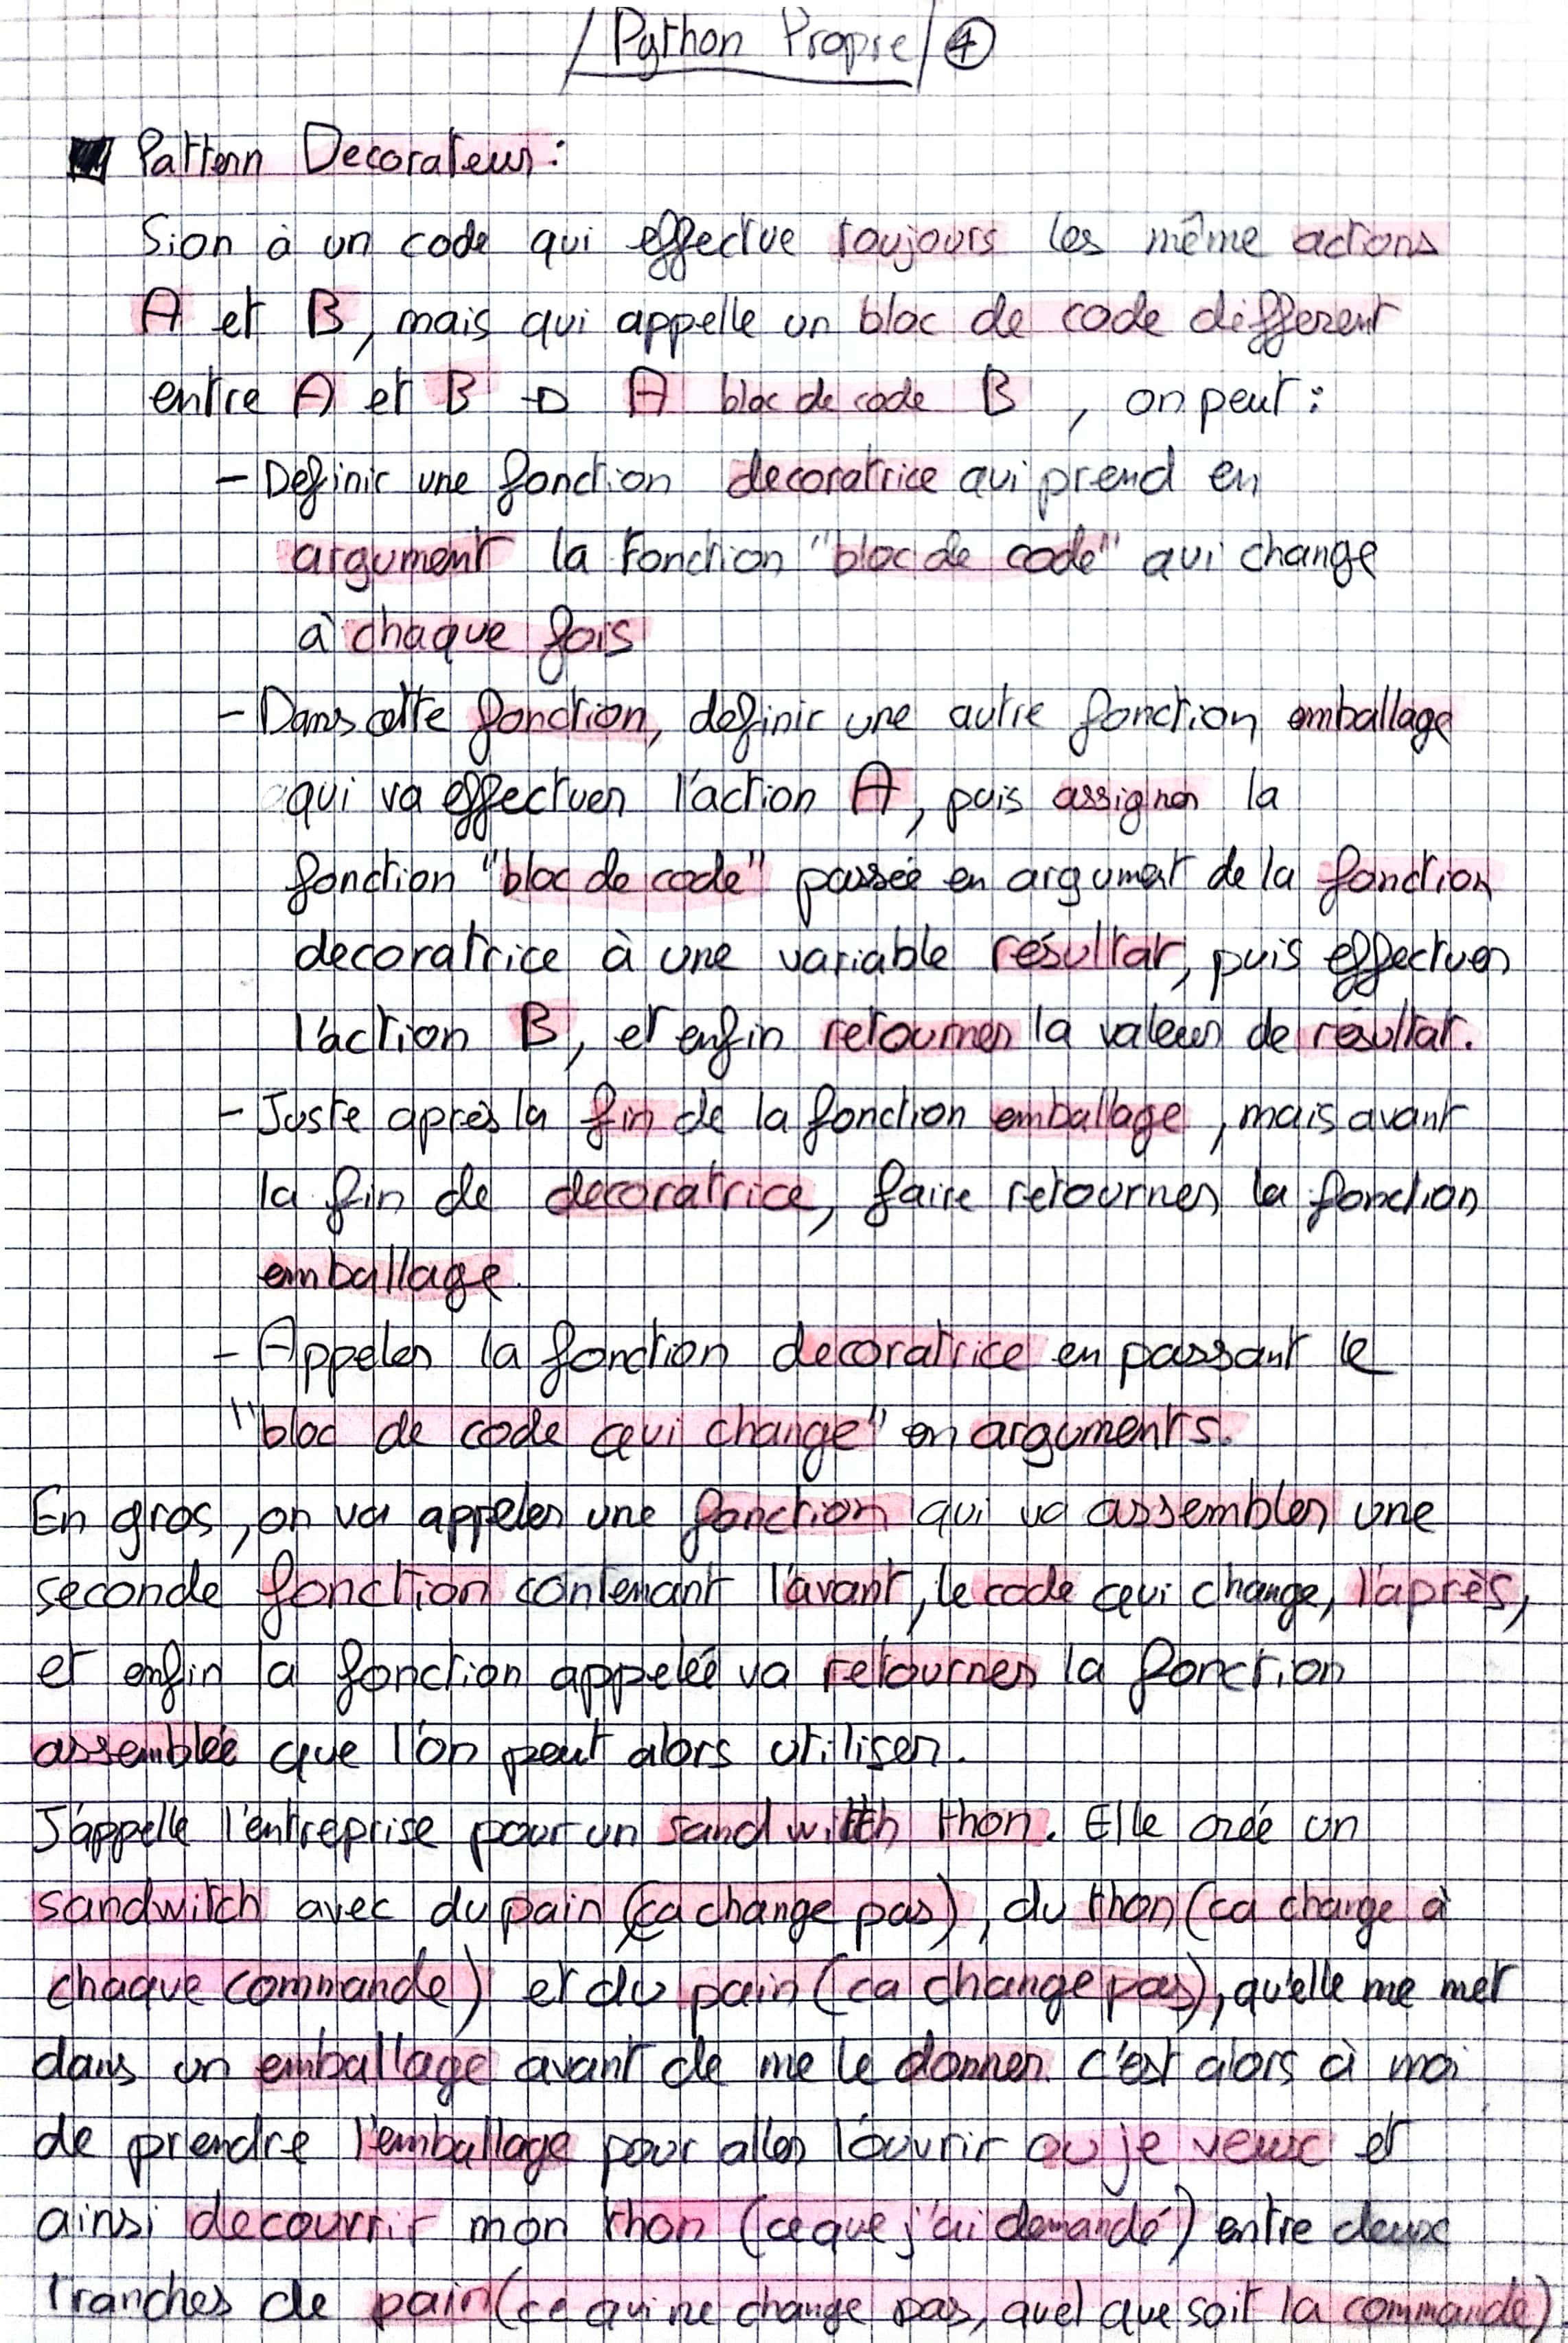 Python Propre 4
Pattern Decorateur :
Si on à un code qui effectue toujours les même actions
A et B, mais qui appelle un bloc de code différent
entre A et B → A bloc de code B , on peut :
- Definir une fonction decoratrice qui prend en
argument la fonction "bloc de code" qui change
à chaque fois
- Dans cette fonction, definir une autre fonction emballage
qui va effectuer l'action A, puis assigner la
fonction "bloc de code" passée en argument de la fonction
decoratrice à une variable résultat, puis effectuer
l'action B, et enfin retourner la valeur de résultat.
- Juste après la fin de la fonction emballage, mais avant
la fin de decoratrice, faire retourner la fonction
emballage.
- Appeler la fonction decoratrice en passant le
"bloc de code qui change" en arguments.
En gros, on va appeler une fonction qui va assembler une
seconde fonction contenant l'avant, le code qui change, l'après,
et enfin la fonction appelée va retourner la fonction
assemblée que l'on peut alors utiliser.
J'appelle l'entreprise pour un sandwitch thon. Elle crée un
sandwitch avec du pain (ça change pas), du thon (ca change à
chaque commande) et du pain (ca change pas), qu'elle me met
dans un emballage avant de me le donner. C'est alors à moi
de prendre l'emballage pour aller l'ouvrir ou je veux et
ainsi decouvrir mon thon (ce que j'ai demandé) entre deux
tranches de pain (ce qui ne change pas, quel que soit la commande)